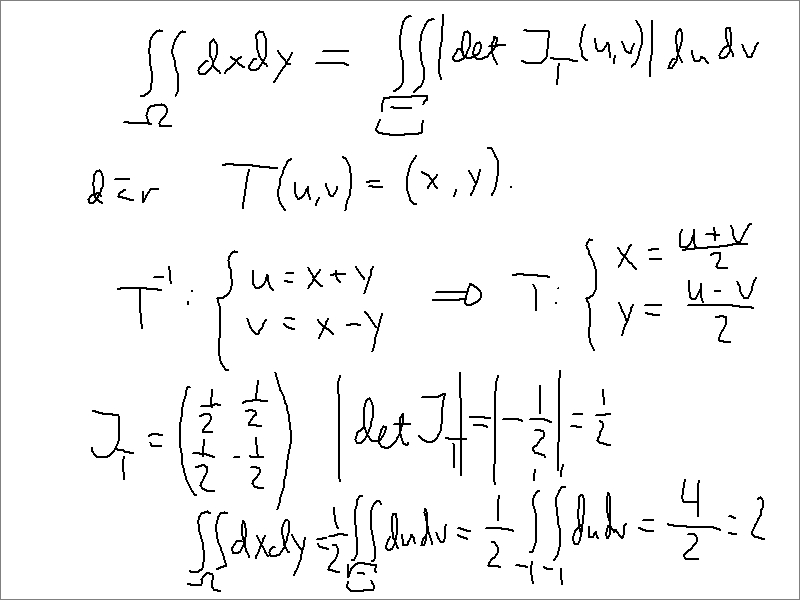 ∬_Ω dxdy = ∬_Ξ |det J_T (u,v)| du dv
där T(u,v) = (x, y).
T⁻¹: { u = x+y, v = x-y ⇒ T: { x = (u+v)/2, y = (u-v)/2
J_T = (1/2 1/2; 1/2 -1/2) |det J_T| = |-1/2| = 1/2
∬_Ω dxdy = 1/2 ∬_Ξ dudv = 1/2 ∫_{-1}^{1} ∫_{-1}^{1} dudv = 4/2 = 2